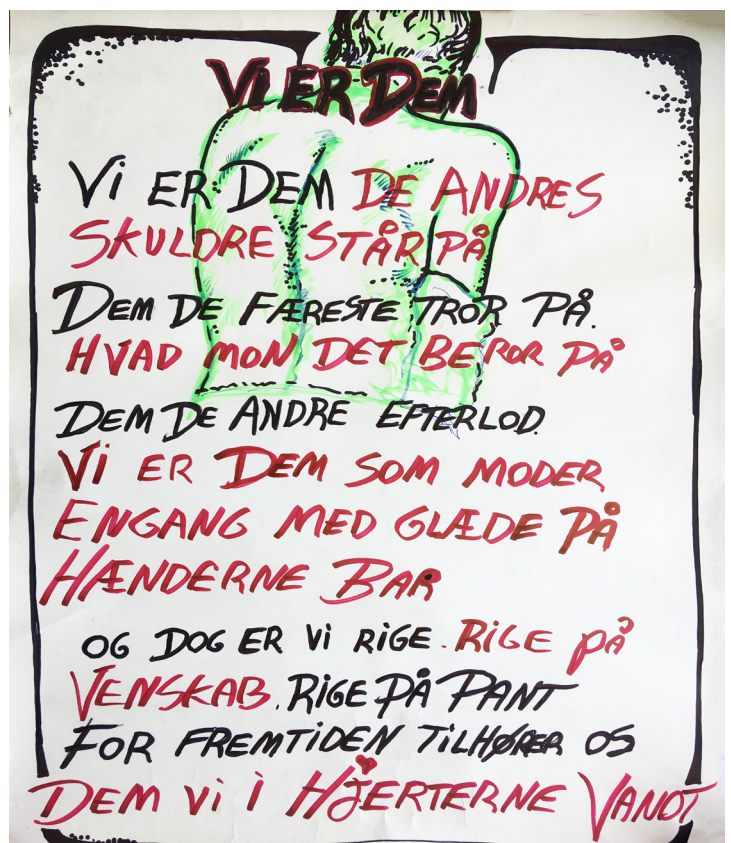 VI ER DEM
Vi ER DEM DE ANDRES
SKULDRE STÅR PÅ
DEM DE FÆRESTE TROR PÅ.
HVAD MON DET BEROR PÅ
DEM DE ANDRE EFTERLOD.
Vi ER DEM SOM MODER
ENGANG MED GLÆDE PÅ
HÆNDERNE BAR
OG DOG ER Vi RIGE. RIGE PÅ
VENSKAB. RIGE PÅ PANT
FOR FREMTIDEN TILHØRER OS
DEM Vi i HJERTERNE VANDT